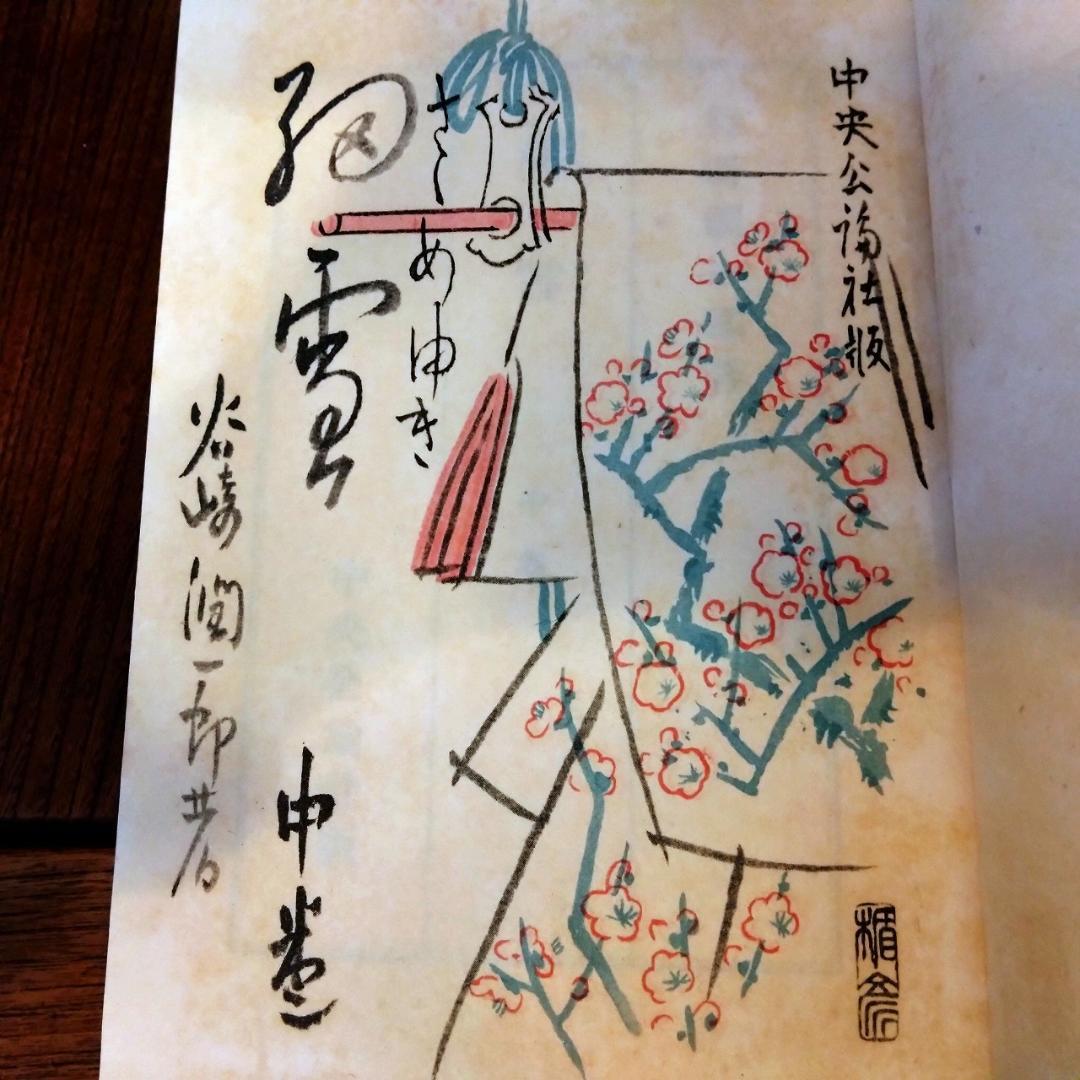 中央公論社版
さゝめゆき
細雪
中巻
谷崎潤一郎著